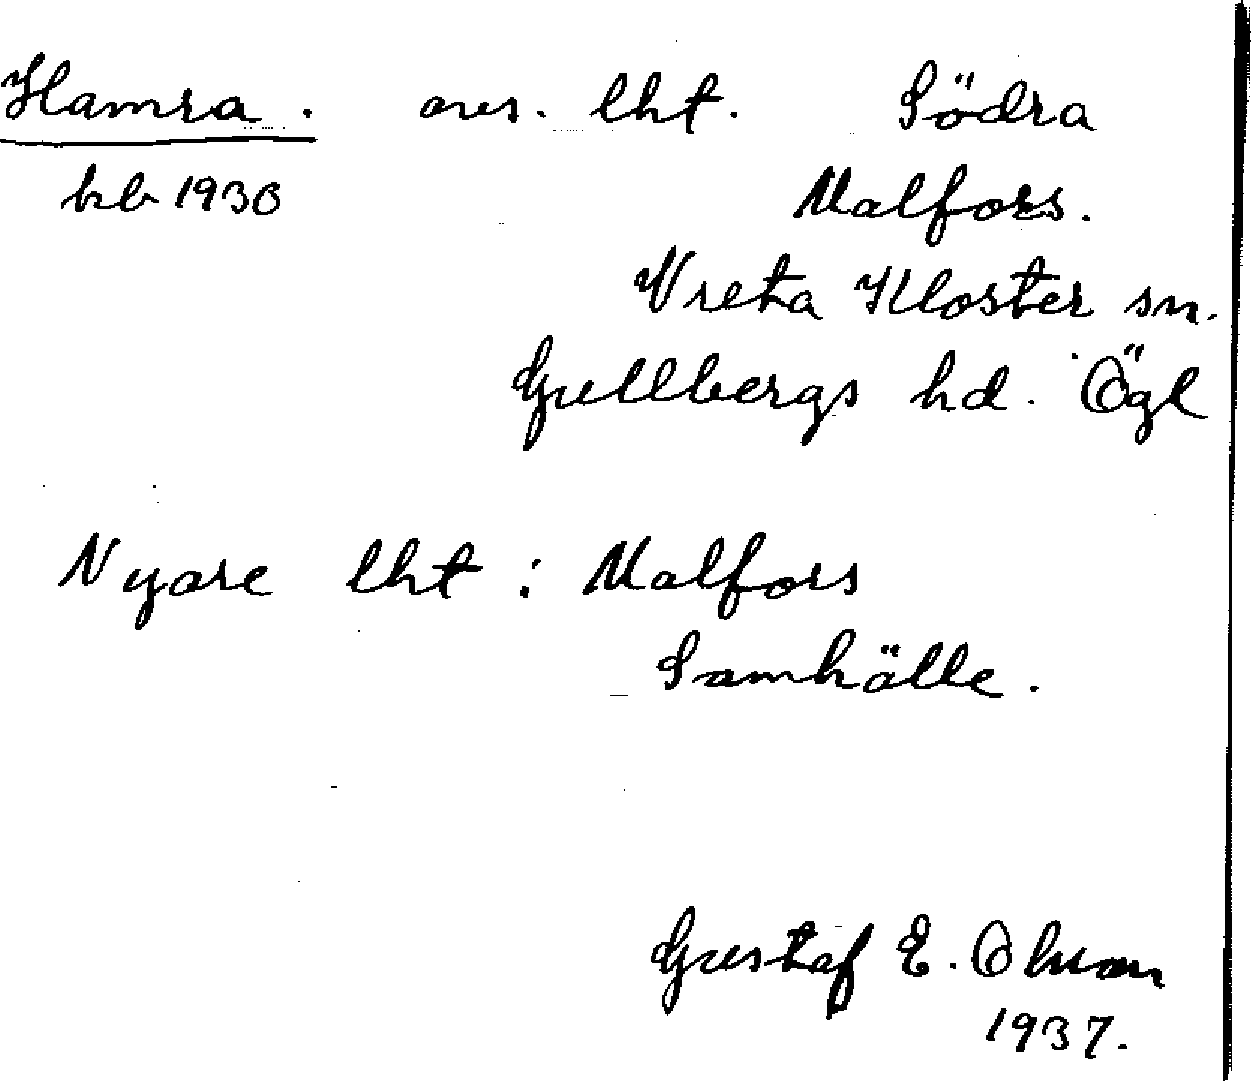 Hamra. avs. lht. Södra
kb 1930
Malfors.
Vreta Kloster sn.
Gullbergs hd. Ögl
Nyare lht: Malfors
Samhälle.
Gustaf E.
1937.